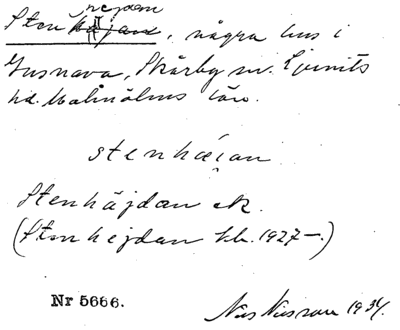 hejdan
Stenhäjan, några hus i
Gussnava, Skårby sn. Ljunits
hd. Malmöhus län.
stenhæi̯an
Stenhäjdan ek.
(Stenhejdan kb. 1927—.)
Nr 5666.
Nils Nilsson 1934.